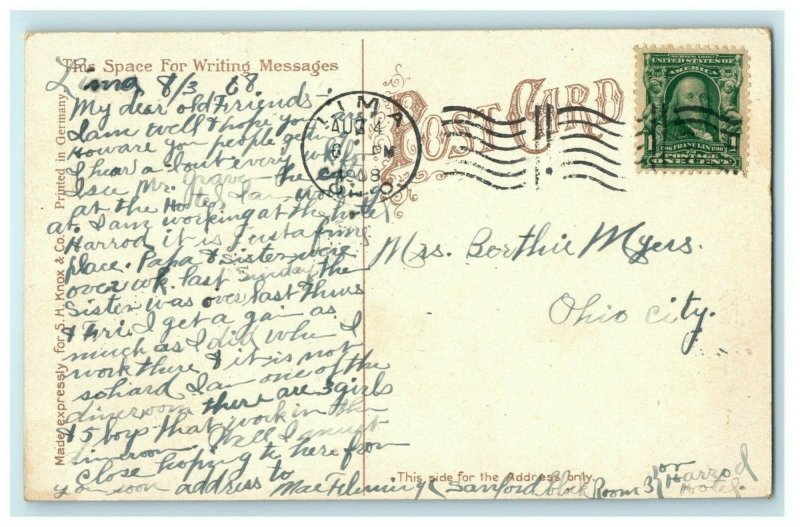 This Space For Writing Messages
Lima 8/3 08
My dear old Friends:
I am well & hope you
How are you people
I hear about every
I see Mr.
at the Hotel I am working
at. I am working at the hotel
Harrod it is Just a fine
place. Papa & Sister were
over wk. last Sunday the
Sister was over last Thurs
& Fri. I get a gain as
much as I did when I
work there & it is not
so hard I am one of the
dineroom there are 3 girls
& 5 boys that work in the
dineroom. Well I must
Close hoping to here from
you soon address to Mae Fleming Sanford Block Room 37
or Harrod
Hotel.
Made expressly for S. H. Knox & Co. Printed in Germany
POST CARD
LIMA
AUG 4
6 PM
1908
OHIO
SERIES 1902
UNITED STATES OF
AMERICA
1 FRANKLIN 1
POSTAGE
ONE CENT
Mrs. Berthie Myers.
Ohio City.
This side for the Address only.